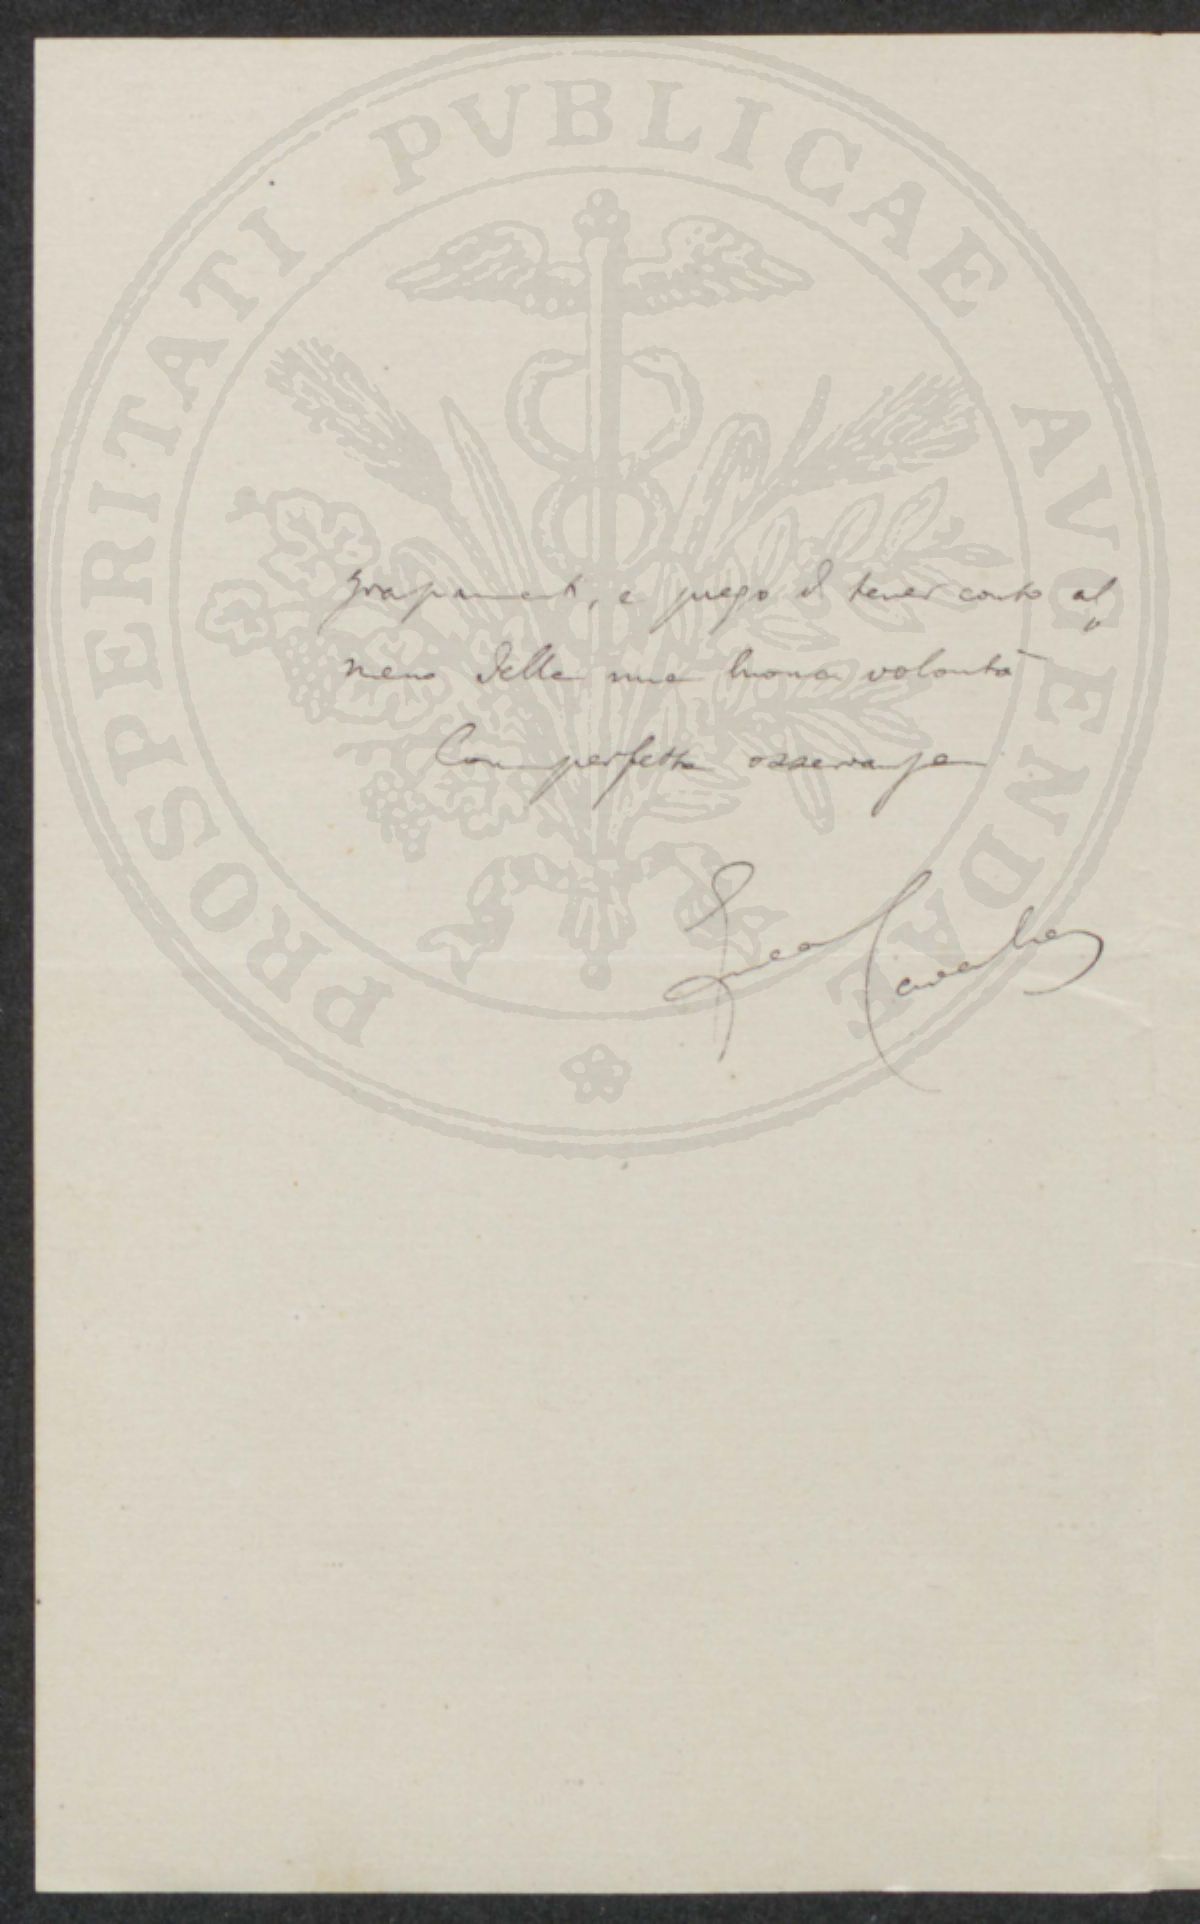 PROSPERITATI PVBLICAE AVGENDAE
e prego di tener conto al„
meno della mia buona volontà
Con perfetta osservanza
Luca